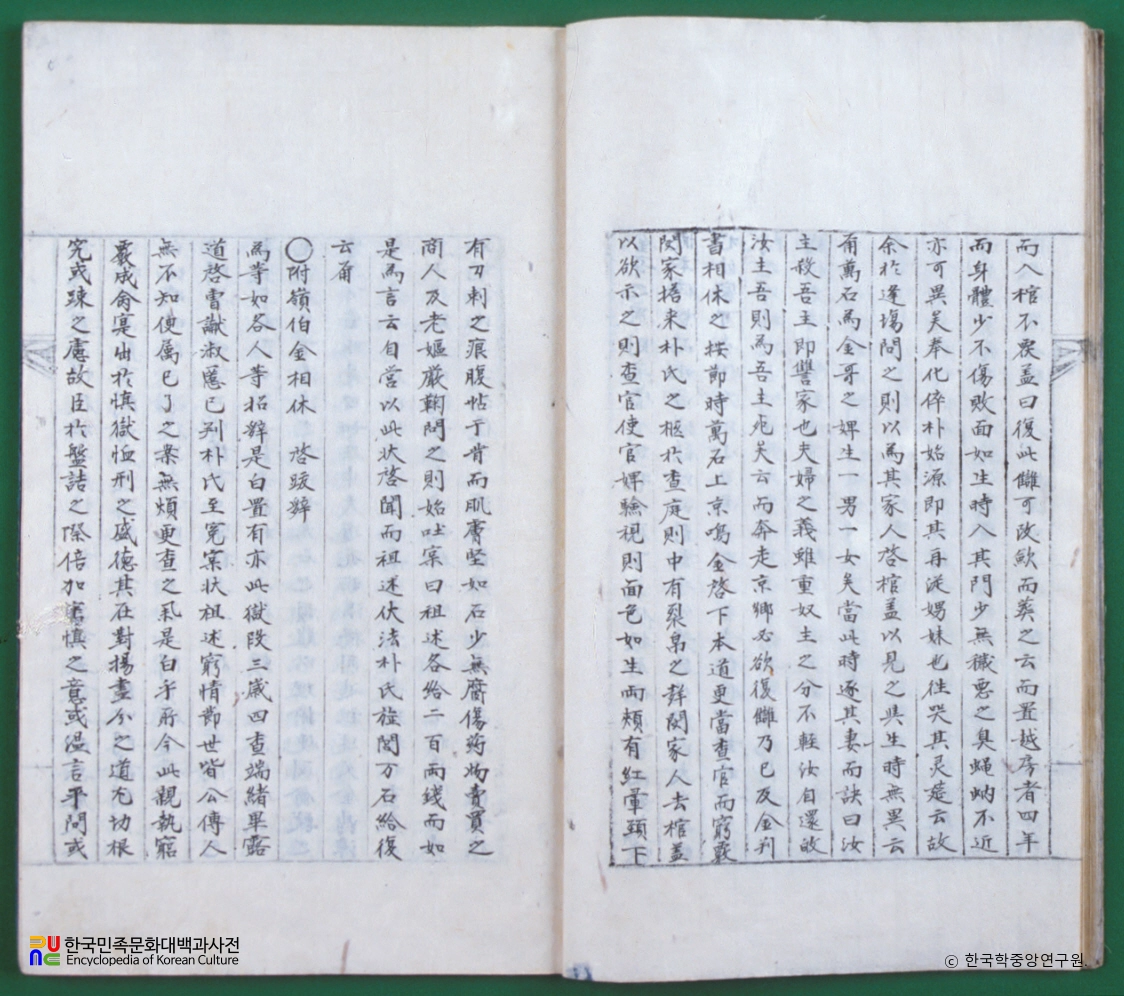 而入棺不覆盖曰復此讎可改斂而葬之云而置越房者四年
而身體少不傷敗面如生時入其門少無穢悪之臭蝇蚋不近
亦可異矣奉化倅朴始源即其再従娚妹也徃哭其灵筵云故
余扵逢塲問之則以為其家人啓棺盖以見之與生時無異云
甭萬石為金哥之婢生一男一女矣當此時逐其妻而訣曰汝
主殺吾主即讐家也夫婦之義雖重奴主之分不軽汝自還
汝主吾則為吾主死矣云而奔走京鄉必欲復讎乃已及金判
書相休之按節時萬石上京鳴金啓下本道更當查官而窮覈
閔家擡来朴氏之柩扵查庭則中有裂帛之聲閔家人去棺盖
以欲示之則查官使官婢驗視則面色如生兩頰有紅暈頸下
有刃刺之痕腹帖于背而肌膚堅如石少無腐傷药物賣買之
商人及老嫗嚴鞫問之則始吐案曰祖述各給二百兩錢而如
是為言云自營以此状啓聞而祖述伏法朴氏旌閭万石給復
云甭
〇附嶺伯金相休 啓跋辤
為等如各人等招辤是白置有亦此獄段三歳四查端緒畢露
道啓曺讞叔慝已判朴氏至冤案状祖述窮情節世皆公傳人
無不知便属已了之案無煩更查之是白乎所今此親執窮
覈成命寔出扵慎獄恤刑之盛德其在對揚晝分之道尤切根
究或踈之慮故臣扵盤詰之際倍加審慎之意或温言平問或
한국민족문화대백과사전
Encyclopedia of Korean Culture
ⓒ 한국학중앙연구원